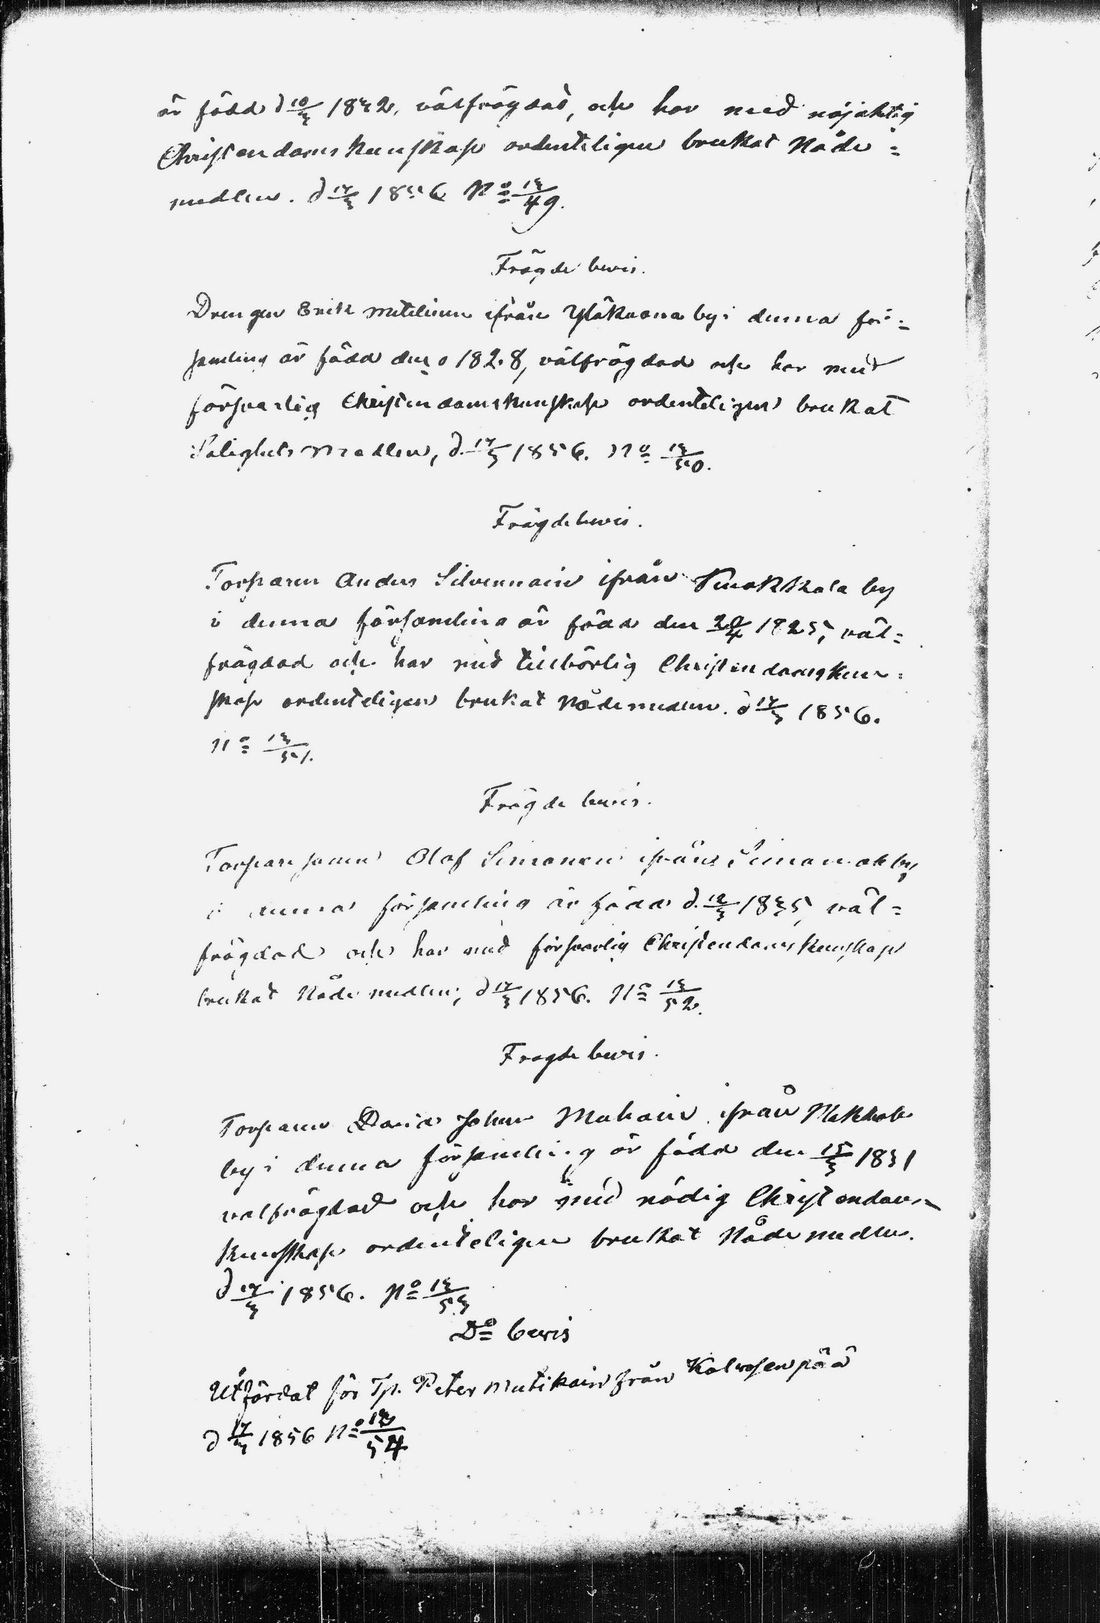 är född d 10/3 1832, välfrägdad, och har med nöjaktig
Christendomskunskap ordenteligen brukat Nåde=
medlen. d 17/3 1856 No 13/49.
Frägdebevis.
Drengen Erik ifrån by i denna för=
samling är född den 1828, välfrägdad och har med
försvarlig Christendomskunskap ordenteligen brukat
Salighets Medlen, d. 17/3 1856. No 13/50.
Frägdebevis.
Torparen Anders Silvennain ifrån by
i denna församling är född den 20/4 1825, väl=
frägdad och har med tillbörlig Christendomskun=
skap ordenteligen brukat Nådemedlen. d 17/3 1856.
No 13/51.
Frägdebevis.
Torparesonen Olof Simonen ifrån by
i denna församling är född d. 12/3 1835, väl=
frägdad och har med försvarlig Christendomskunskap
brukat Nådemedlen, d 17/3 1856. No 13/52.
Fragdebevis.
Torparen David Johan Muhain ifrån
by i denna församling är född den 15/3 1831
valfrägdad och har med nödig Christendoms
kunskap ordenteligen brukat Nådemedlen.
d 17/3 1856. No 13/53
Do bevis
Utfärdat för Tp. Peter Mutikain från Kolwosenpää
d 17/3 1856 No 13/54